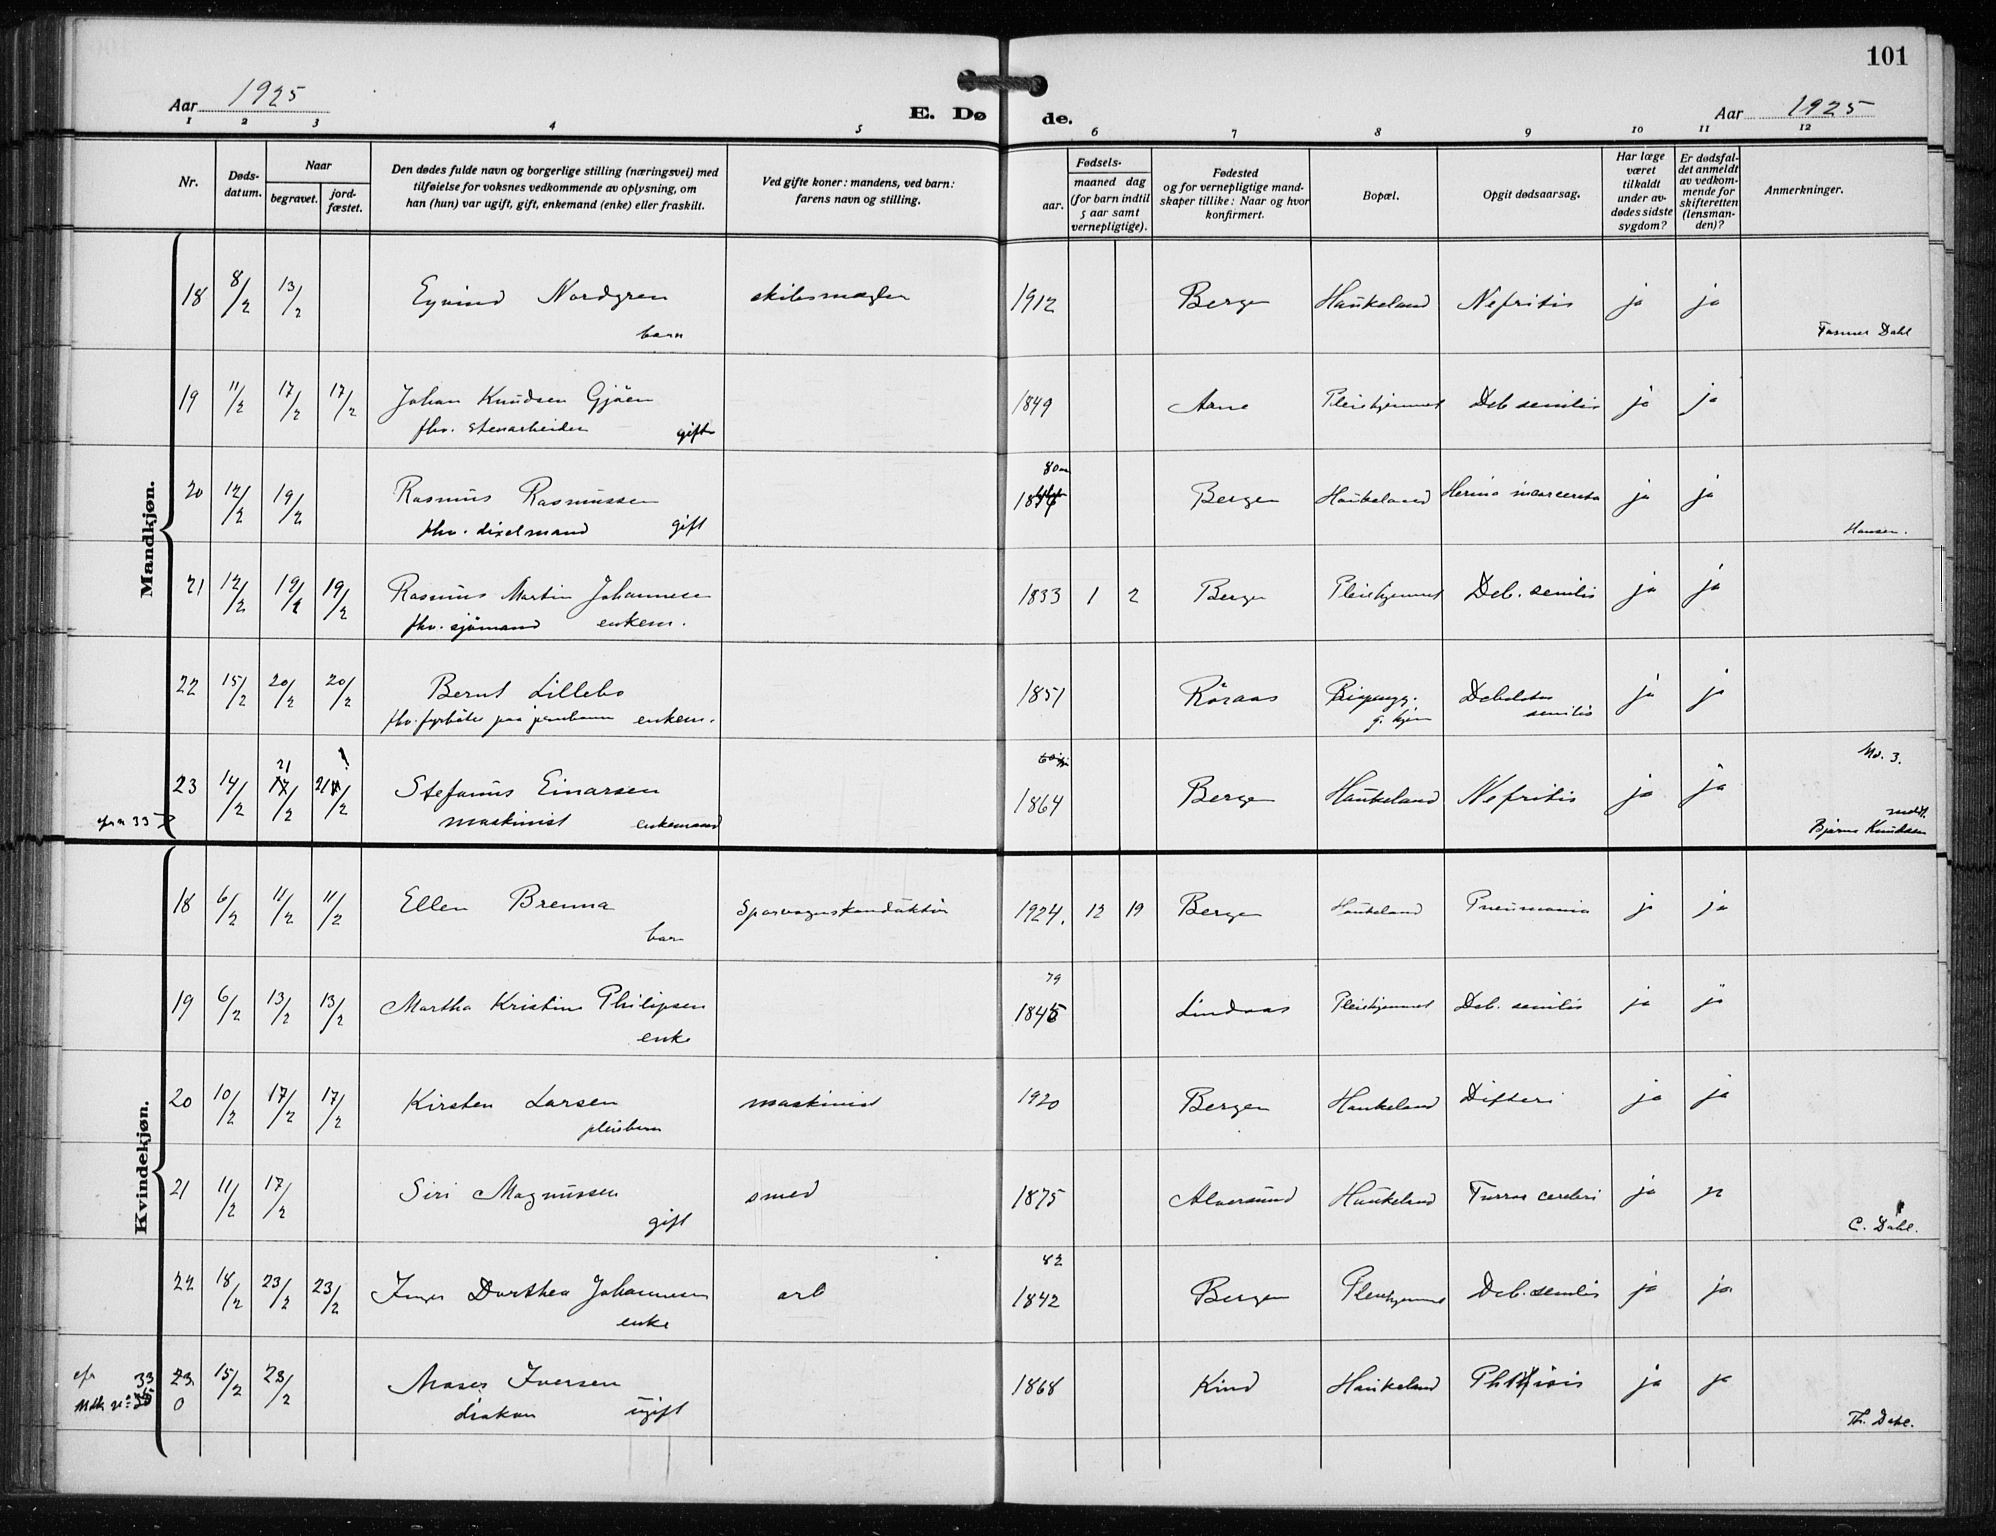 101
Aar 1925
E. Dø de.
Aar 1925
1 2 3 4 5 6 7 8 9 10 11 12
Nr.
Døds-
datum.
Naar
begravet.
jord-
fæstet.
Den dødes fulde navn og borgerlige stilling (næringsvei) med
tilføielse for voksnes vedkommende av oplysning, om
han (hun) var ugift, gift, enkemand (enke) eller fraskilt.
Ved gifte koner: mandens, ved barn:
farens navn og stilling.
Fødsels-
aar.
maaned dag
(for barn indtil
5 aar samt
vernepligtige).
Fødested
og for vernepligtige mand-
skaper tillike: Naar og hvor
konfirmert.
Bopæl.
Opgit dødsaarsag.
Har læge
været
tilkaldt
under av-
dødes sidste
sygdom?
Er dødsfal-
det anmeldt
av vedkom-
mende for
skifteretten
(lensman-
den)?
Anmerkninger.
Mandkjøn.
18 8/2 13/2 Eyvind Nordgren skibsmægler 1912 Bergen Haukeland Nefritis ja ja
barn Dahl
19 11/2 17/2 17/2 Johan Knudsen Gjöen 1849 Arne Pleiehjemmet Deb senilis ja ja
fhv. stenarbeider gift
80
20 12/2 19/2 Rasmus Rasmussen Bergen Haukeland ja ja
fhv. gift Hansen.
21 12/2 19/2 19/2 Rasmus Martin Johannesen 1833 1 2 Bergen Pleiehjemmet Deb. senilis ja ja
fhv. sjömand enkem.
22 15/2 20/2 20/2 Bernt Lillebo 1851 Röraas Debilitas ja ja
fhv. fyrböter paa jernbanen enkem. g. hjem senilis
21 Md. 3.
23 14/2 17/2 /2 Stefanus Einarsen 1864 Bergen Haukeland Nefritis ja ja
33 maskinist enkemand Bjarne Knudsen
Kvindekjøn.
18 6/2 11/2 11/2 Ellen Brenna Sporvognskonduktör 1924. 12 19 Bergen Haukeland Pneumonia ja ja
barn
79
19 6/2 13/2 13/2 Martha Kristine Philipsen 1845 Lindaas Pleiehjemmet Deb. senilis ja ja
enke
20 10/2 17/2 17/2 Kirsten Larsen maskinist 1920 Bergen Haukeland Difteri ja ja
pleiebarn
21 11/2 17/2 Siri Magnussen smed 1875 Alversund Haukeland ja ja
gift C. Dahl.
82
22 18/2 23/2 23/2 Inger Dorthea Johannesen arb 1842 Bergen Pleiehjemmet Deb. senilis ja ja
enke
33 23 15/2 23/2 Moses Iversen 1868 Kind Haukeland Phthisis ja ja
0 diakon ugift Th. Dahl.